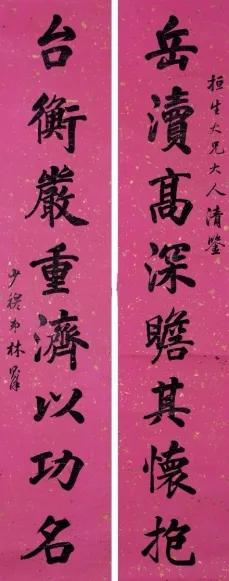 桓生大兄大人清鑒
岳瀆高深瞻其懷抱
台衡嚴重濟以功名
少穆弟林則徐